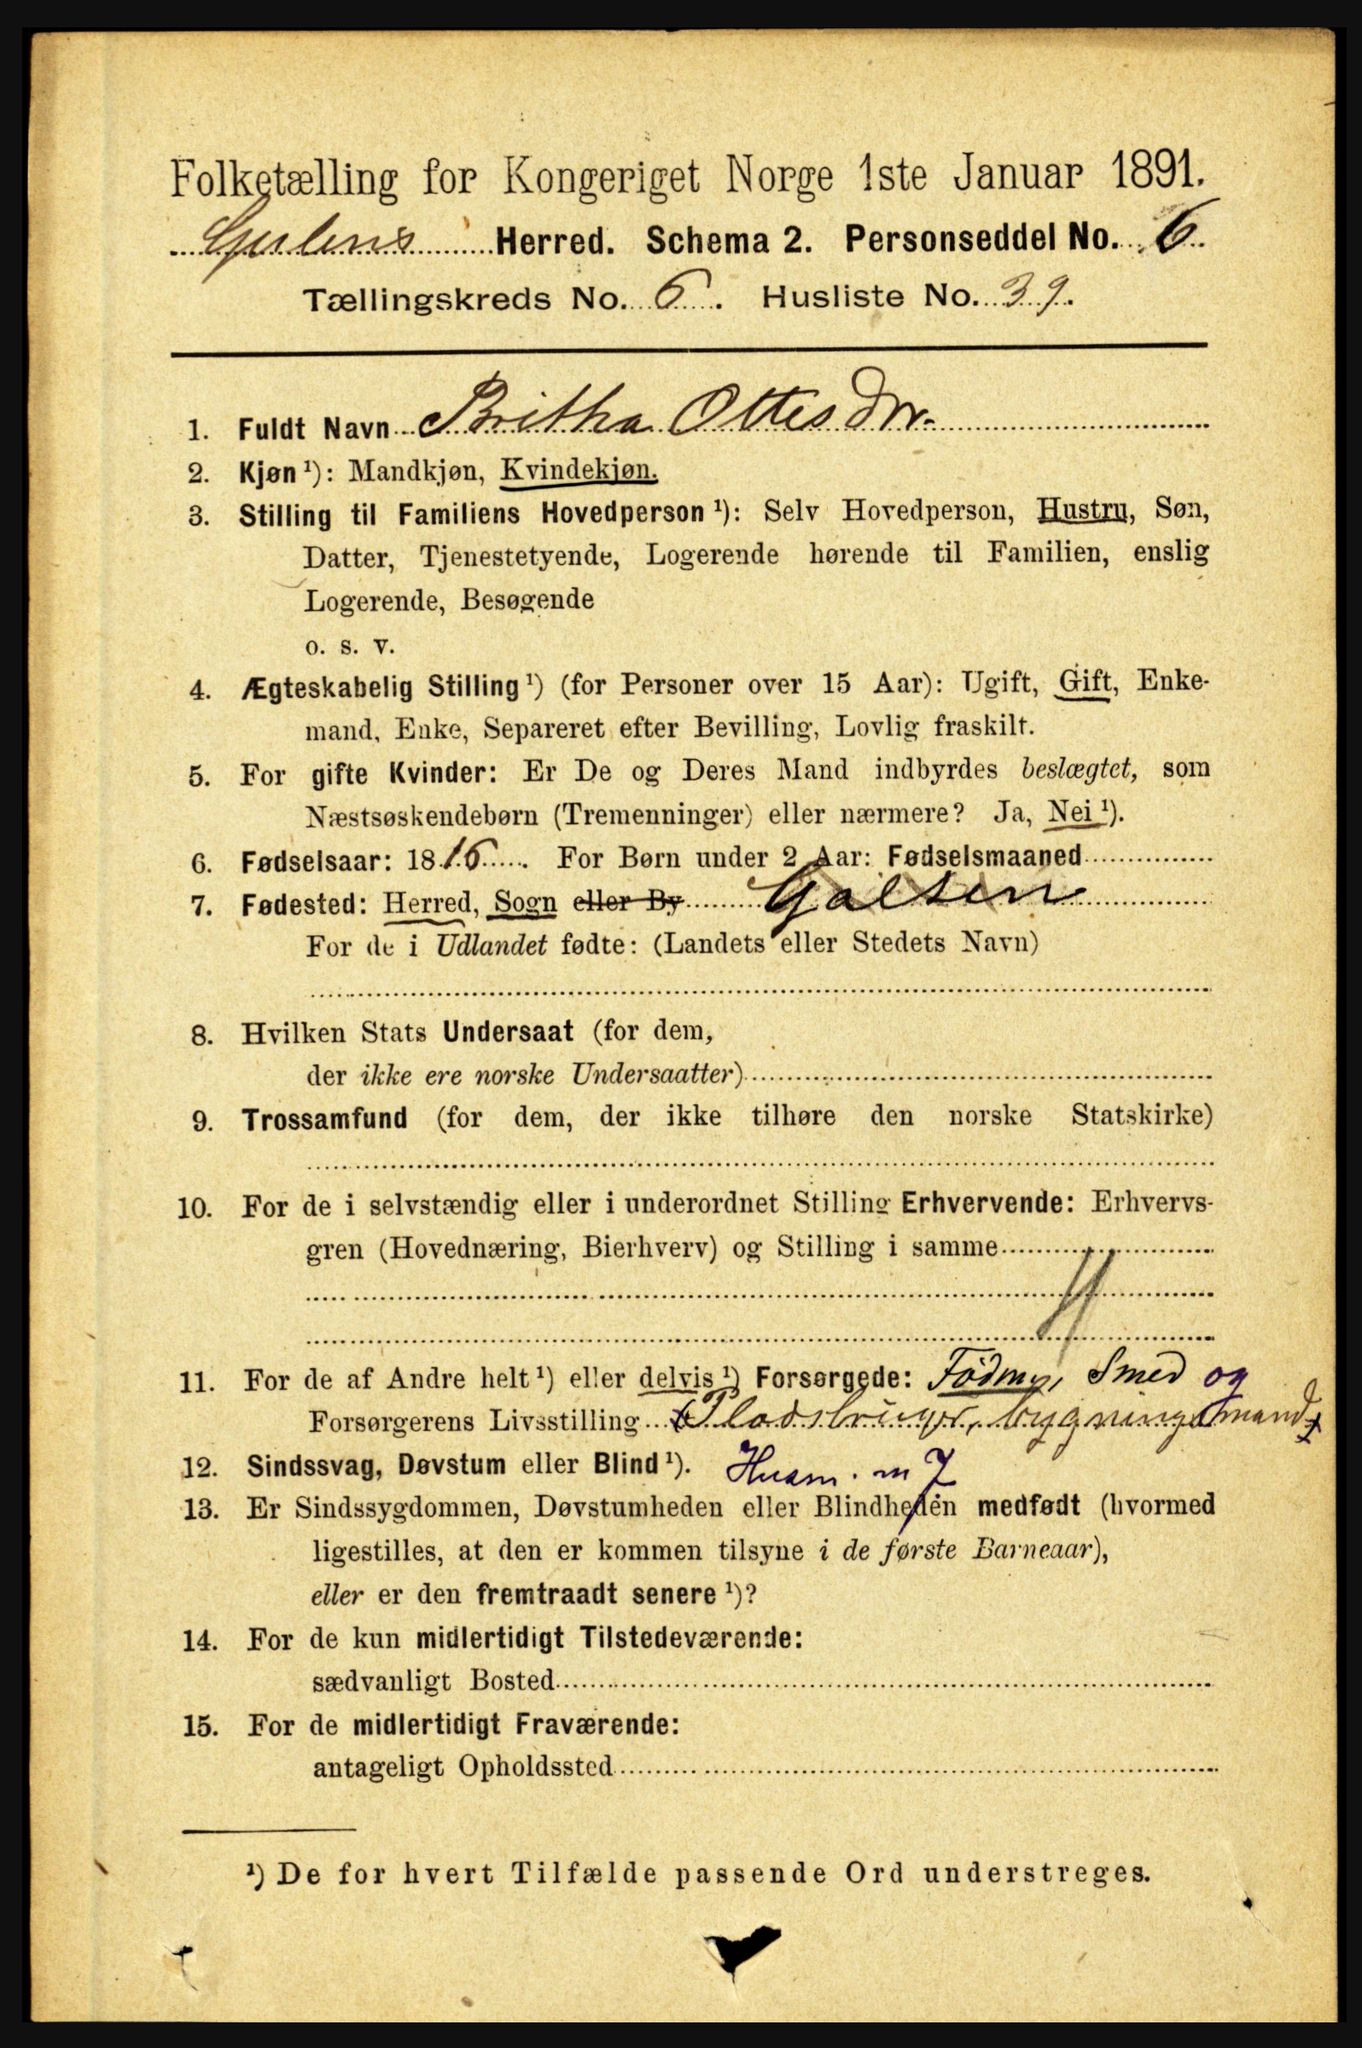 Folketælling for Kongeriget Norge 1ste Januar 1891.
Gulens Herred. Schema 2. Personseddel No. 6.
Tællingskreds No. 6. Husliste No. 39.
1. Fuldt Navn Britha Ottesdtr.
2. Kjøn ¹): Mandkjøn, Kvindekjøn.
3. Stilling til Familiens Hovedperson ¹): Selv Hovedperson, Hustru, Søn,
Datter, Tjenestetyende, Logerende hørende til Familien, enslig
Logerende, Besøgende
o. s. v.
4. Ægteskabelig Stilling ¹) (for Personer over 15 Aar): Ugift, Gift, Enke-
mand, Enke, Separeret efter Bevilling, Lovlig fraskilt.
5. For gifte Kvinder: Er De og Deres Mand indbyrdes beslægtet, som
Næstsøskendebørn (Tremenninger) eller nærmere? Ja, Nei ¹).
6. Fødselsaar: 1816. For Børn under 2 Aar: Fødselsmaaned
7. Fødested: Herred, Sogn eller By
For de i Udlandet fødte: (Landets eller Stedets Navn)
8. Hvilken Stats Undersaat (for dem,
der ikke ere norske Undersaatter)
9. Trossamfund (for dem, der ikke tilhøre den norske Statskirke)
10. For de i selvstændig eller i underordnet Stilling Erhvervende: Erhvervs-
gren (Hovednæring, Bierhverv) og Stilling i samme
H
11. For de af Andre helt ¹) eller delvis ¹) Forsørgede: Smed og
Forsørgerens Livsstilling Pladsbruger, bygningsmand
12. Sindssvag, Døvstum eller Blind ¹). Husm. m J
13. Er Sindssygdommen, Døvstumheden eller Blindheden medfødt (hvormed
ligestilles, at den er kommen tilsyne i de første Barneaar),
eller er den fremtraadt senere ¹)?
14. For de kun midlertidigt Tilstedeværende:
sædvanligt Bosted
15. For de midlertidigt Fraværende:
antageligt Opholdssted
¹) De for hvert Tilfælde passende Ord understreges.